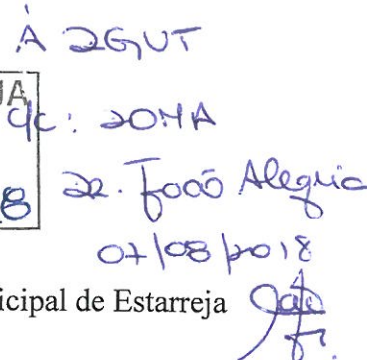 À DGUT
JA
c/c: DOMA
8 Dr. João Alegria
07/08/2018
icipal de Estarreja